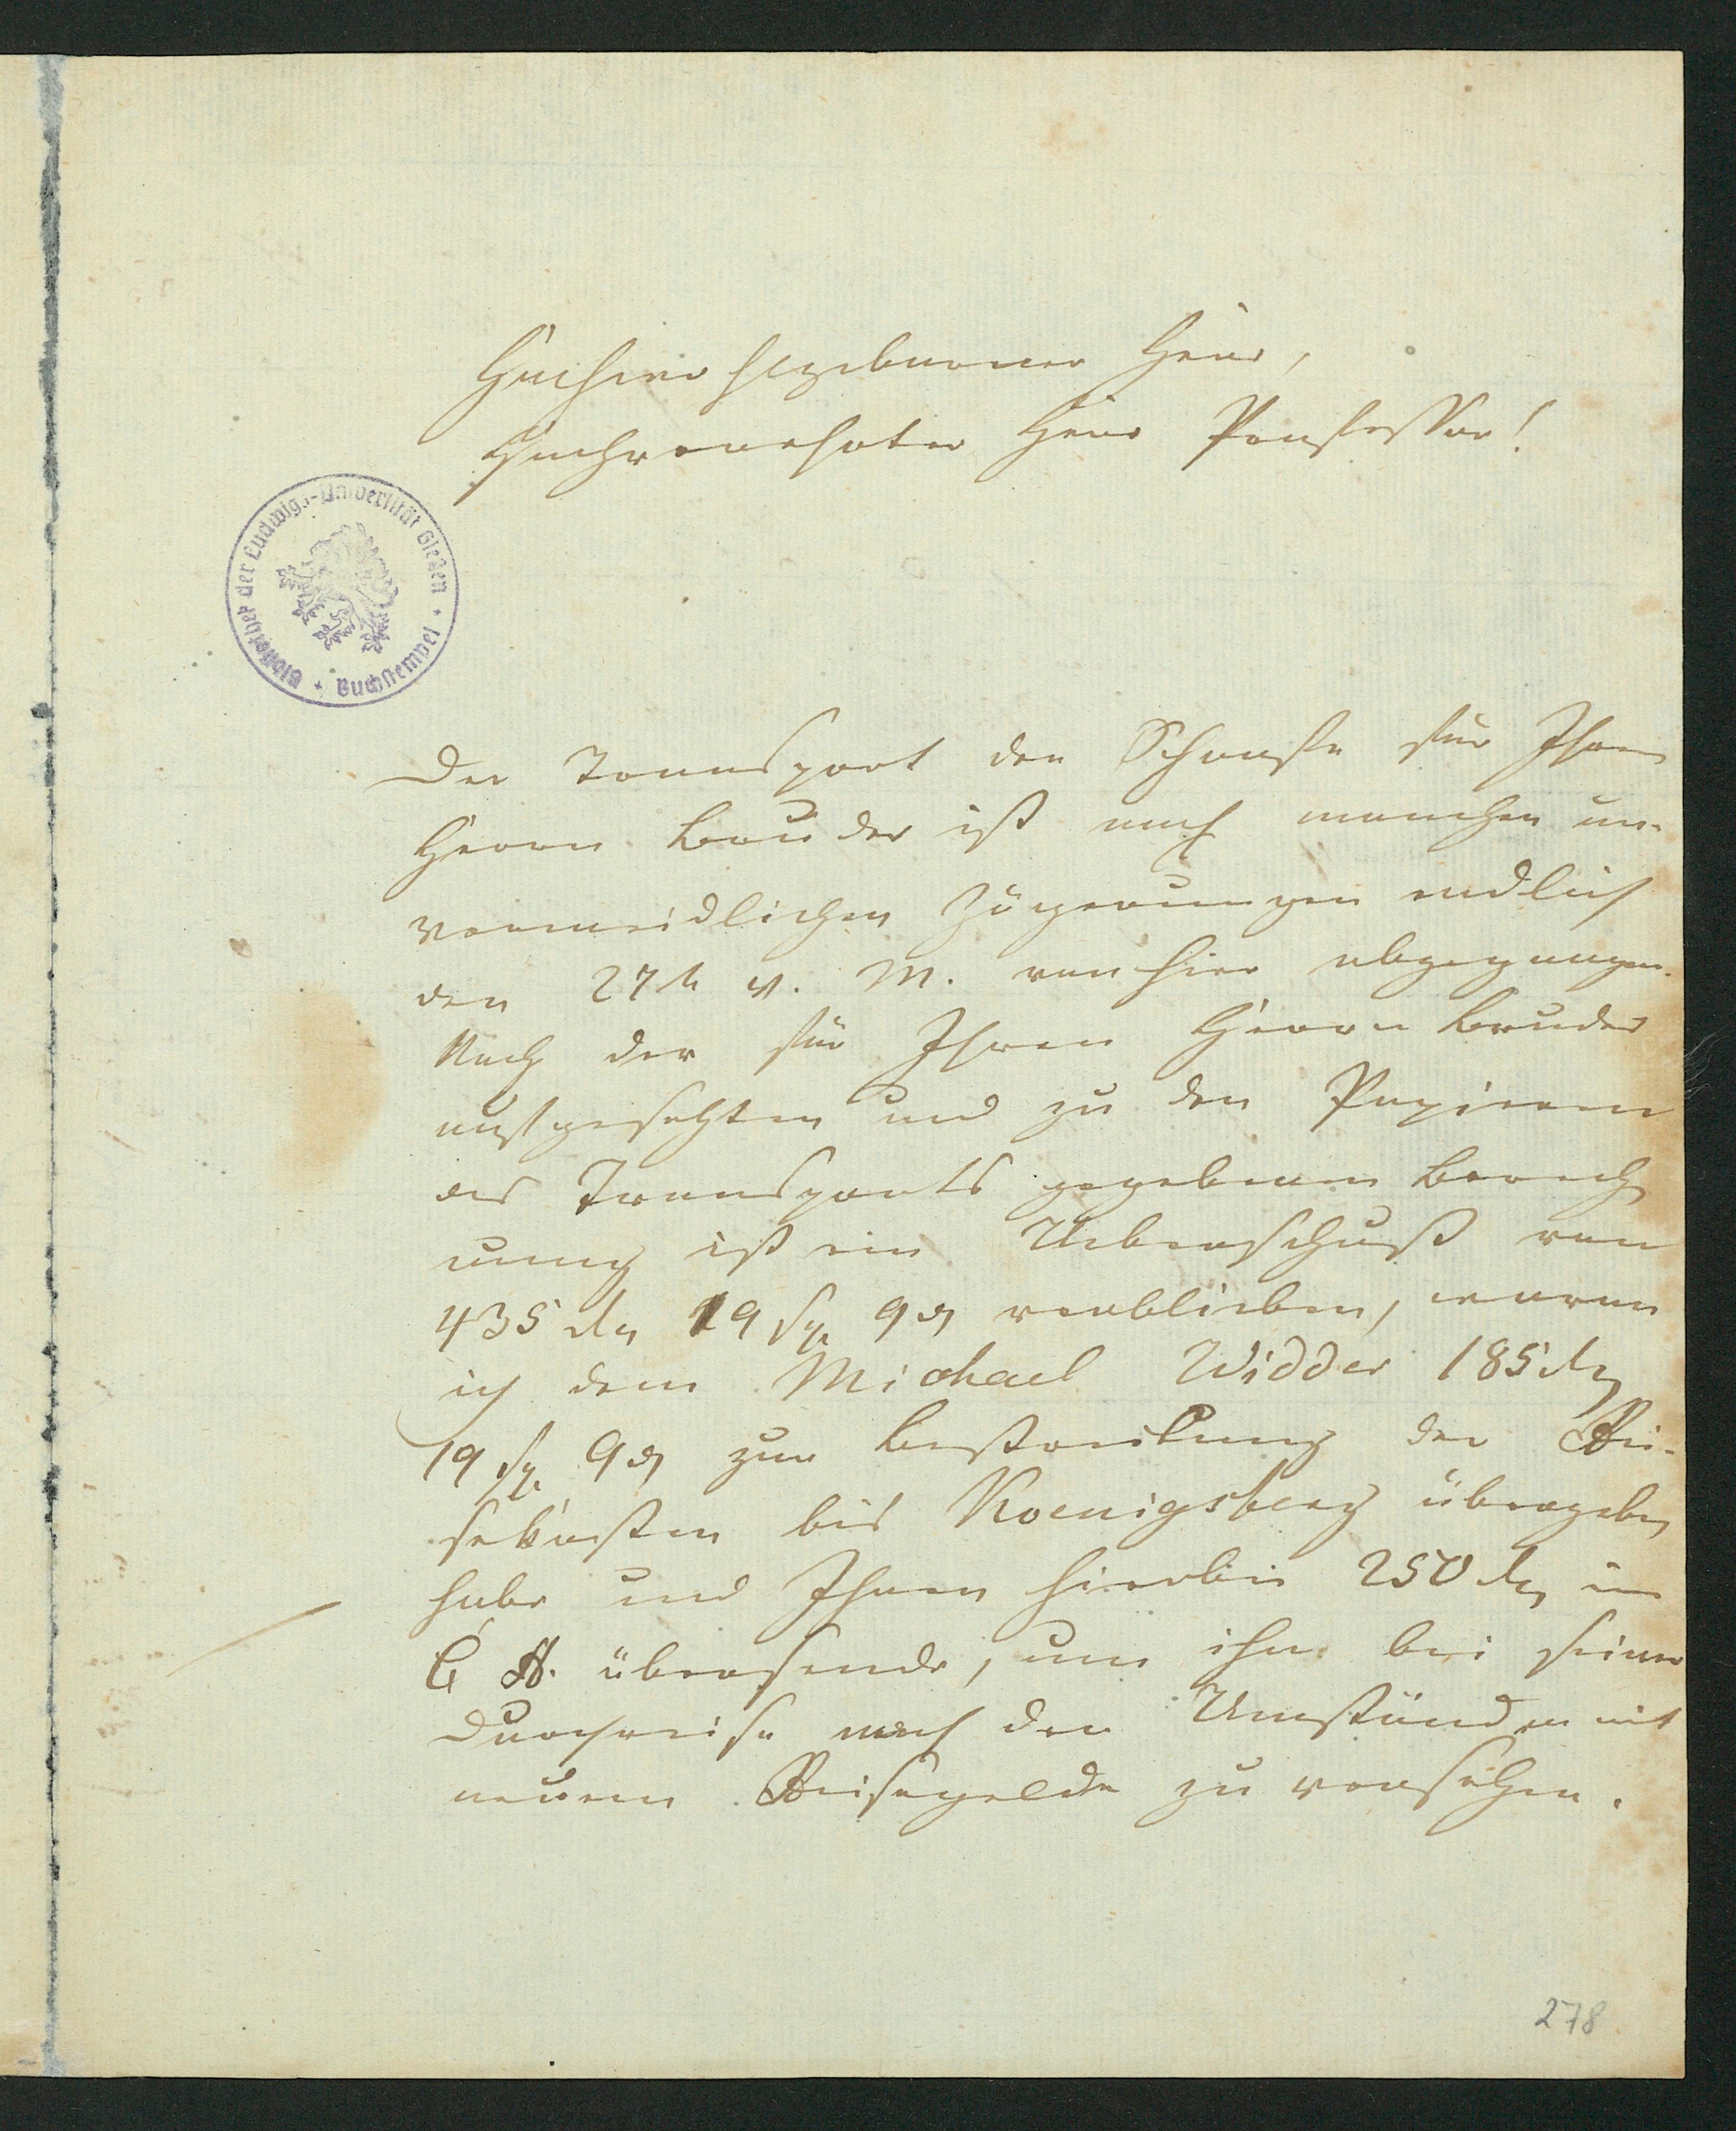 Hochwohlgeborner Herr,
Hochverehrter Herr Professor!
Bibliothek der Ludwigs-Universität Gießen * Buchstempel *
Der Transport der Schaafe für Ihren
Herrn Bruder ist nach manchen un-
vermeidlichen Zögerungen endlich
den 27t v. M. von hier abgegangen.
Nach der für Ihren Herrn Bruder
aufgesetzten und zu den Papieren
des Transports gegebenen Berech
nung ist ein Ueberschuß von
435 rℓ 19 sg 9 ₰ verblieben, wovon
ich dem Michael Widder 185 rℓ
19 sg 9 ₰ zur Bestreitung der Rei-
sekosten bis Koenigsberg übergeben
habe und Ihnen hierbei 250 rℓ in
C. A. übersende, um ihn bei seiner
Durchreise nach den Umständen mit
neuem Reisegelde zu versehen.
278